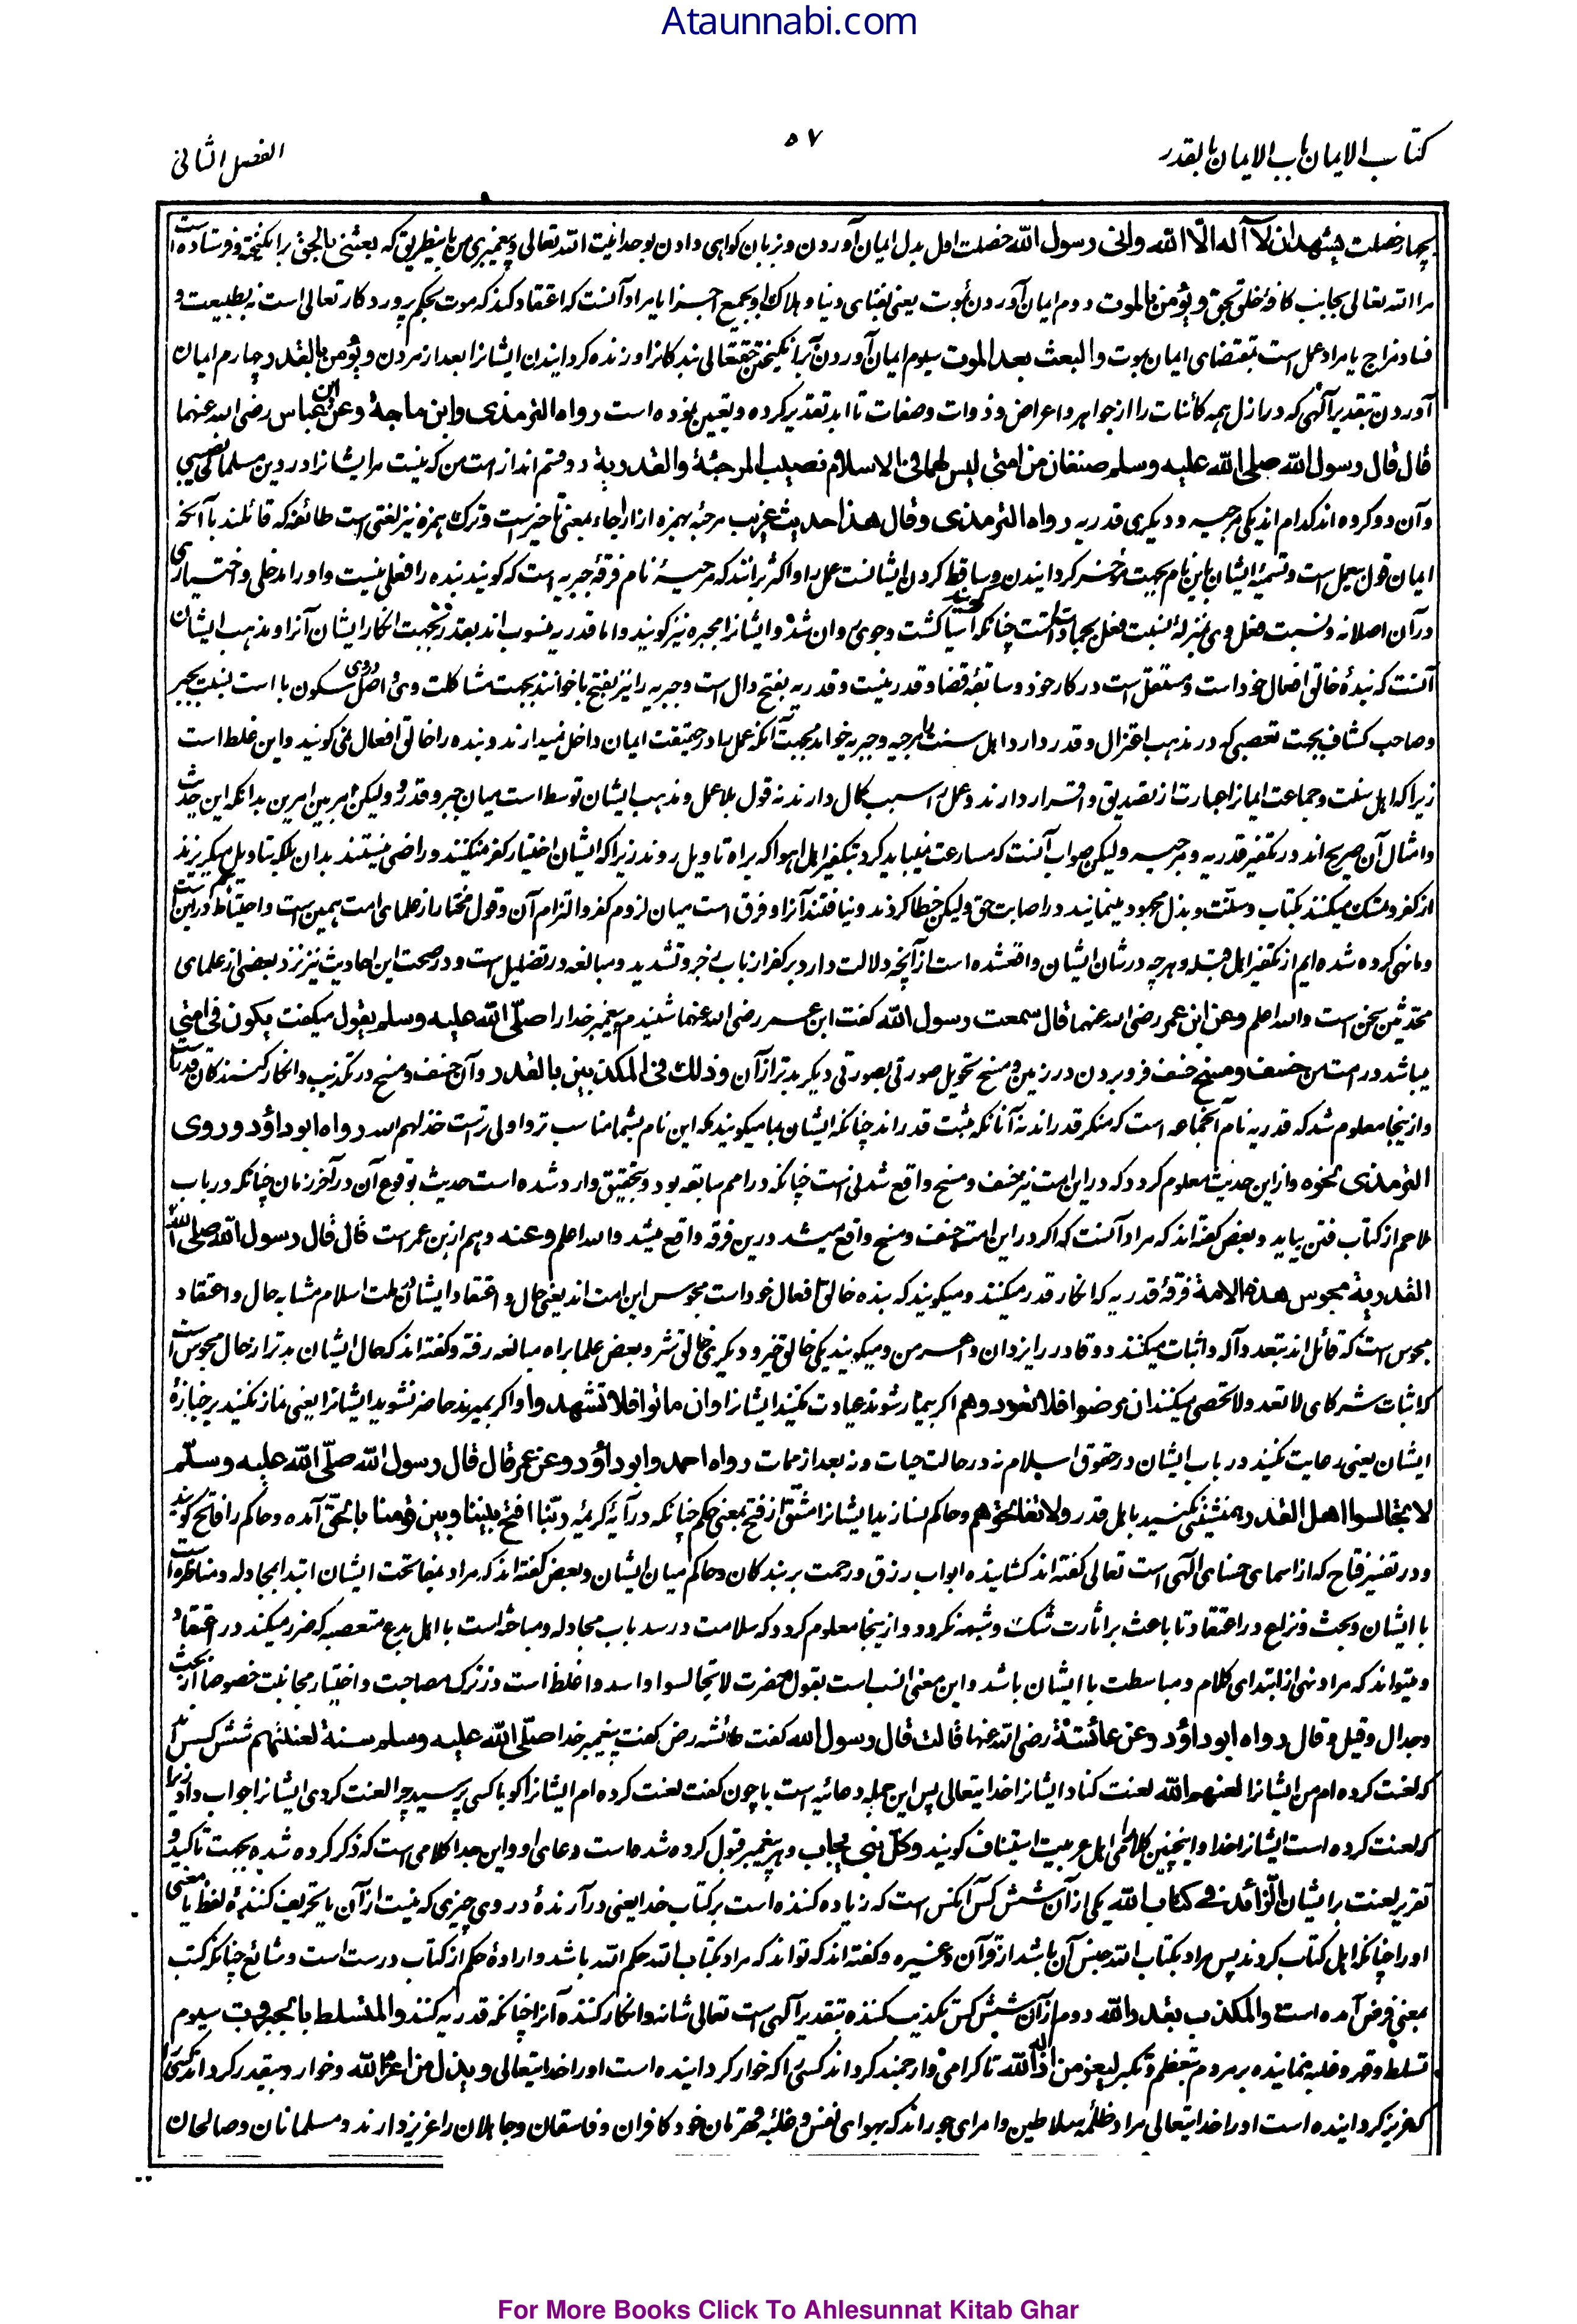 Ataunnabi.com
کتاب الایمان باب الایمان بالقدر
۵۷
الفصل الثانی
بچهار خصلت یشهد ان لا آله الّا الله وانی رسول الله خصلت اول بدل ایمان آوردن و بزبان کواهی دادن بوحدانیت الله تعالی و پیغمبری من باینطریق که بعثنی بالحق برانکیخته و فرستاده است
مرا الله تعالی بجانب کافۀ خلق بحق و یؤمن بالموت دوم ایمان آوردن بموت یعنی بفنای دنیا و هلاک او بجمیع اجزا یا مراد آنست که اعتقاد کند که موت بحکم پروردکار تعالی است نه بطبیعت و
فساد مزاج یا مراد عمل است بمقتضای ایمان بموت والبعث بعد الموت سیوم ایمان آوردن بر انکیختن حقتعالی بندکانرا و زنده کردانیدن ایشانرا بعد از مردن و یؤمن بالقدر چهارم ایمان
آوردن بتقدیر آلهی که در ازل همه کائنات را از جواهر و اعراض و ذوات و صفات تا ابد تقدیر کرده و تعیین نموده است رواه الترمذی وابن ماجة وعن ابن عباس رضی الله عنهما
قال قال رسول الله صلی الله علیه وسلم صنفان من امتی لیس لهما فی الاسلام نصیب المرجئة والقدریة دو قسم اند از امت من که نیست مر ایشانرا در دین مسلمانی نصیبی
وآن دو کروه اند کدام اند یکی مرجیه و دیکری قدریه رواه الترمذی وقال هذا حدیث غریب مرجئه بهمزه از ارجاء بمعنی تاخیرست و ترک همزه نیز لغتی است طائفه که قائلند بآنکه
ایمان قول بیعمل است و تسمیۀ ایشان باین نام بجهت مؤخر کردانیدن و ساقط کردن ایشانست عمل را و اکثر برانند که مرجیه نام فرقۀ جبریه است که کویند بنده را فعلی نیست و او را مدخلی و اختیاری
در آن اصلا نه و نسبت فعل بوی بمنزلۀ نسبت فعل بجمادات است چنانکه کویند آسیا کشت و جوی روان شد و ایشانرا مجبره نیز کویند و اما قدریه منسوب اند بقدر بجهت انکار ایشان آنرا و مذهب ایشان
آنست که بنده خالق افعال خود است و مستقل است در کار خود و سابقۀ قضا و قدر نیست و قدریه بفتح دال است و جبریه را نیز بفتح با خوانند بجهت مشاکلت وی و اصل در وی سکون با است نسبت بجبر
و صاحب کشاف بجهت تعصبی که در مذهب اعتزال و قدر دارد اهل سنت را مرجیه و جبریه خواند بجهت آنکه عمل را در حقیقت ایمان داخل نمیدارند و بنده را خالق افعال نمی کویند و این غلط است
زیرا که اهل سنت و جماعت ایمانرا عبارت از تصدیق و اقرار دارند و عمل را سبب کمال دارند نه قول بلا عمل و مذهب ایشان توسط است میان جبر و قدر و لیکن امر بین امرین بدانکه این حدیث
وامثال آن صریح اند در تکفیر قدریه و مرجیه ولیکن صواب آنست که مسارعت نمیباید کرد بتکفیر اهل اهوا که براه تاویل روند زیرا که ایشان اختیار کفر نمیکنند و راضی نیستند بدان بلکه بتاویل میکریزند
از کفر و تمسک میکنند بکتاب وسنّت و بذل مجهود مینمایند در اصابت حق ولیکن خطا کردند و نیافتند آنرا و فرق است میان لزوم کفر و التزام آن و قول مختار از علمای امت همین است و احتیاط درین است
و ما نهی کرده شده ایم از تکفیر اهل قبله و هر چه در شان ایشان واقعشده است از آنچه دلالت دارد بر کفر از باب زجر و تشدید و مبالغه در تضلیل است و در صحت این احادیث نیز نزد بعضی از علمای
محدثین سخن است والله اعلم وعن ابن عمر رضی الله عنهما قال سمعت رسول الله کفت ابن عمر رضی الله عنهما شنیدم پیغمبر خدا را صلّی الله علیه وسلم یقول میکفت یکون فی امتی
میباشد در امت من خسف ومسخ خسف فرو بردن در زمین و مسخ تحویل صورتی بصورتی دیکر بدتر از آن وذلك فی المکذبین بالقدر وآن خسف و مسخ در تکذیب و انکار کنندکان قدرست
وازینجا معلوم شد که قدریه نام آنجماعه است که منکر قدراند نه آنانکه مثبت قدراند چنانکه ایشان بما میکویند که این نام بشما مناسب تر و اولی ترست خذلهم الله رواه ابو داؤد وروی
الترمذی نحوه وازین حدیث معلوم کردد که درین امت نیز خسف و مسخ واقع شدنی است چنانکه در امم سابقه بود و بتحقیق وارد شده است حدیث بوقوع آن در آخر زمان چنانکه در باب
ملاحم از کتاب فتن بیاید و بعض کفته اند که مراد آنست که اکر در این امت خسف و مسخ واقع میشد درین فرقه واقع میشد والله اعلم وعنه وهم از بن عمر است قال قال رسول الله صلی الله
القدریة مجوس هذه الامة فرقۀ قدریه که انکار قدر میکنند و میکویند که بنده خالق افعال خود است مجوس این امت اند یعنی حال و اعتقاد ایشان در ملت اسلام مشابه حال و اعتقاد
مجوس است که قائل اند بتعدد آله و اثبات میکنند دو قادر را یزدان و اهرمن و میکویند یکی خالق خیر و دیکری خالق شر و بعض علما براه مبالغه رفته و کفته اند که حال ایشان بدتر از حال مجوس است
که اثبات شرکای لا تعد ولا تحصی میکنند ان مرضوا فلا تعودوهم اکر بیمار شوند عیادت نکنید ایشانرا وان ماتوا فلا تشهدوا و اکر بمیرند حاضر نشوید ایشانرا یعنی نماز نکنید بر جنازۀ
ایشان یعنی رعایت نکنید در باب ایشان در حقوق اسلام نه در حالت حیات و نه بعد از ممات رواه احمد وابو داؤد وعن عمر قال قال رسول الله صلّی الله علیه وسلّم
لا تجالسوا اهل القدر همنشینی نکنید باهل قدر ولا تفاتحوهم و حاکم نسازید ایشانرا مشتق از فتح بمعنی حکم چنانکه در آیۀ کریمه ربّنا افتح بیننا وبین قومنا بالحق آمده و حاکم را فاتح کویند
و در تفسیر فتاح که از اسمای حسنای آلهی است تعالی کفته اند کشاینده ابواب رزق و رحمت بر بندکان و حاکم میان ایشان و بعض کفته اند که مراد بمفاتحت ایشان ابتدا بمجادله و مناظره است
با ایشان و بحث و نزاع در اعتقاد تا باعث بر اثارت شک و شبهه نکردد و ازینجا معلوم کردد که سلامت در سد باب مجادله و مباحثه است با اهل بدع متعصبه که ضرر میکند در اعتقاد
و میتواند که مراد نهی از ابتدای کلام و مباسطت با ایشان باشد و این معنی انسب است بقول آنحضرت لا تجالسوا و اسد و اغلظ است در ترک مصاحبت و اختیار مجانبت خصوصا از بحث
وجدال و قیل و قال رواه ابو داؤد وعن عائشة رضی الله عنها قالت قال رسول الله کفت عائشه رض کفت پیغمبر خدا صلّی الله علیه وسلم ستة لعنتهم شش کس اند
که لعنت کرده ام من ایشانرا لعنهم الله لعنت کناد ایشانرا خدایتعالی پس این جمله دعائیه است یا چون کفت لعنت کرده ام ایشانرا کویا کسی پرسید چرا لعنت کردی ایشانرا جواب داد زیرا
که لعنت کرده است ایشانرا خدا و اینچنین کلام را اهل عربیت استیناف کویند وکلّ نبی یجاب و هر پیغمبر قبول کرده شده است دعای او و این جدا کلامی است که ذکر کرده شده بجهت تاکید و
تقریر لعنت بر ایشان الزائد فی کتاب الله یکی از آن شش کس آنکس است که زیاده کننده است بر کتاب خدا یعنی در آرندۀ در وی چیزی که نیست از آن یا تحریف کنندۀ لفظ یا معنی
او را چنانکه اهل کتاب کردند پس مراد بکتاب الله جنس آن باشد از قرآن و غیره و کفته اند که تواند که مراد بکتاب الله حکم الله باشد و ارادۀ حکم از کتاب درست است و شائع چنانکه کتب
بمعنی فرض آمده است والمکذب بقدر الله دوم از آن شش کس تکذیب کننده بتقدیر آلهی است تعالی شانه و انکار کننده آنرا چنانکه قدریه کنند والمتسلط بالجبروت سیوم
تسلط و قهر و غلبه نماینده بر مردم بتعظم و تکبر لیعز من اذله الله تا کرامی و ارجمند کرداند کسی را که خوار کردانیده است او را خدایتعالی ویذل من اعزه الله و خوار و بیقدر کرداند کسی را
که عزیز کردانیده است او را خدایتعالی مراد ظلمه سلاطین و امرای جور اند که بهوای نفس و غلبه و قهرمان خود کافران و فاسقان و جاهلان را عزیز دارند و مسلمانان و صالحان
For More Books Click To Ahlesunnat Kitab Ghar